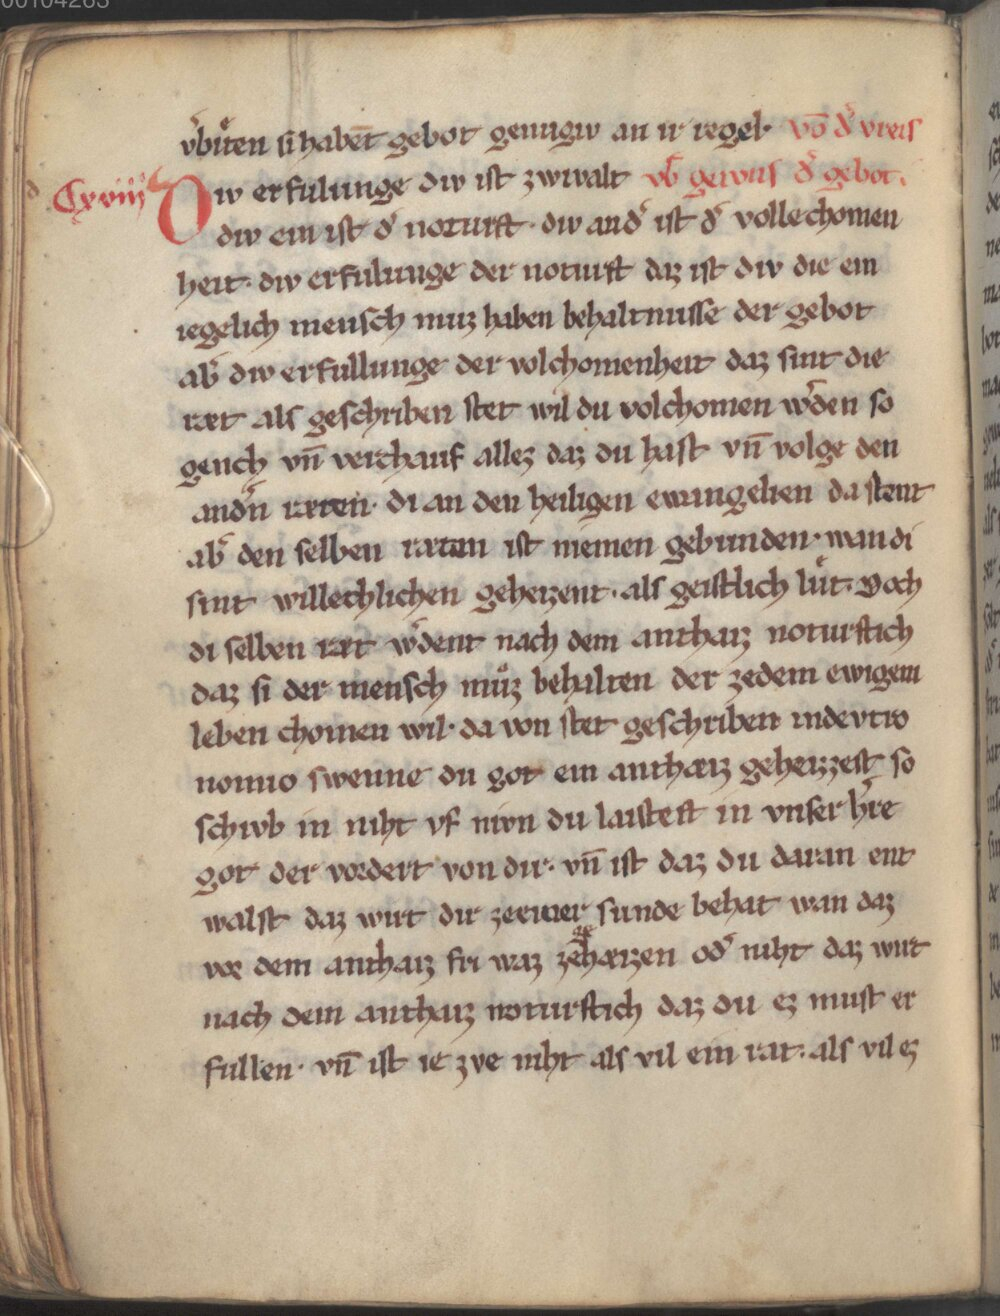 00104263
v̓bu̓ten si habent gebot genugiv an ir regel· vō d̓ vreis
Cxviiij Div erfulunge div ist zwivalt vb̓ gewns d̓ gebot.
div ein ist d̓ noturft · div and̓ ist d̓ vollechomen
heit· div erfulunge der noturft daz ist div die ein
iegelich mensch muz haben behaltnusse der gebot
ab̓ div erfullunge der volchomenheit daz sint die
ræt als geschriben stet wil du volchomen w̓den so
gench vn̄ verchauf allez daz du hast vn̄ volge den
and̓n ræten· di an den heiligen ewangelien da stent
ab̓ den selben ræten ist niemen gebunden· wan di
sint willechlichen geheizent· als geistlich lu̓t· Doch
di selben ræt w̓dent nach dem anthaiz noturftich
daz si der mensch můz behalten der zedem ewigem
leben chomen wil· da von stet geschriben indevtro
nomio swenne du got ein anthæiz geheizzest so
schivb in niht vf nivn du laistest in vnser h̓re
got der vordert von dir· vn̄ ist daz du daran ent
walst daz wirt dir zeeiner sunde behat wan daz
vor dem anthaiz fri waz zehæizen od̓ niht daz wirt
nach dem anthaiz noturftich daz du ez must er
fullen· vn̄ ist ie zve niht als vil ein rat· als vil ez